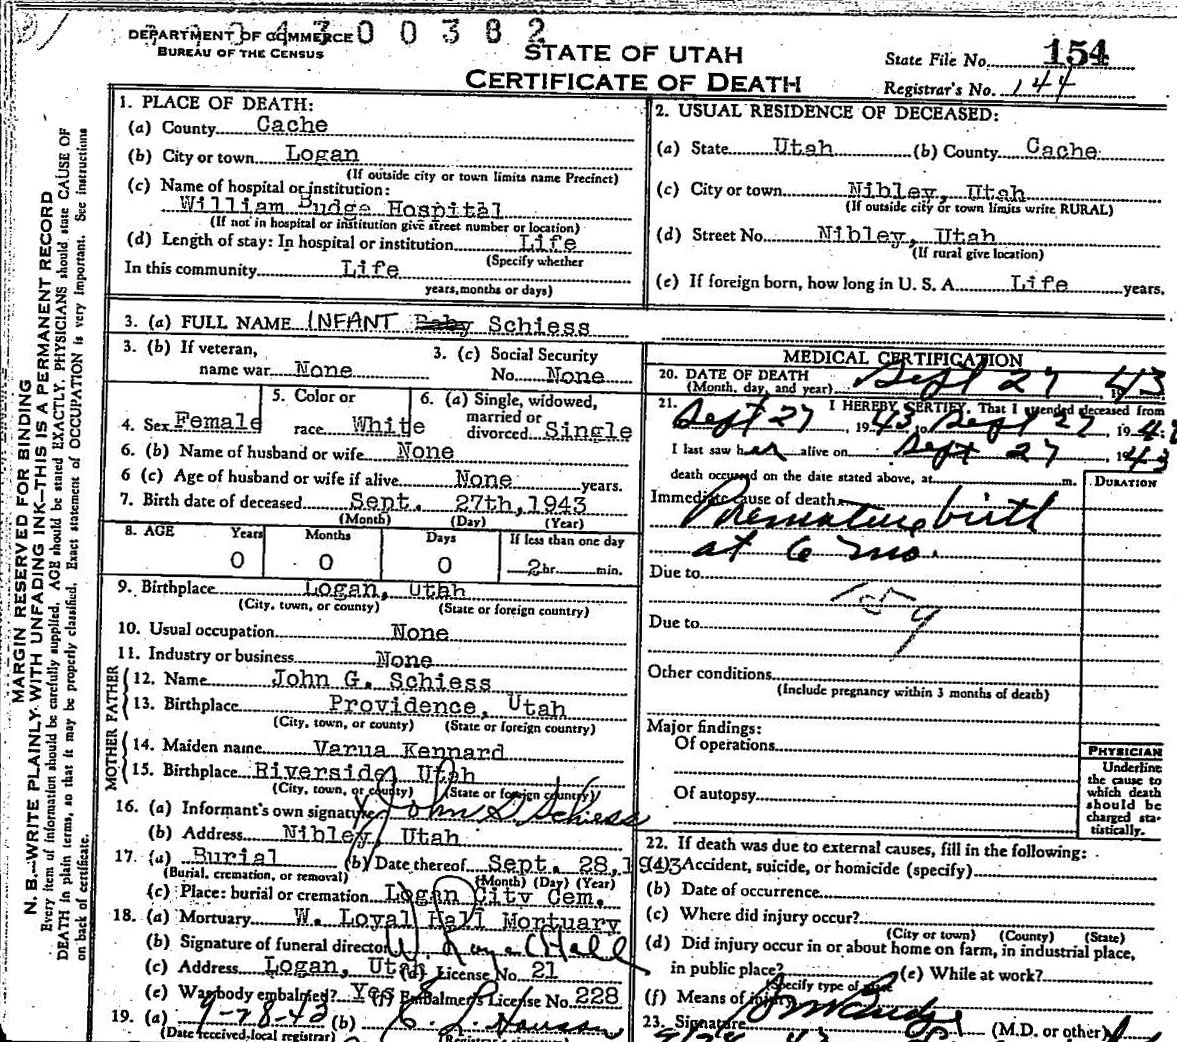 4300382
DEPARTMENT OF COMMERCE
BUREAU OF THE CENSUS
STATE OF UTAH
CERTIFICATE OF DEATH
State File No. 154
Registrar's No. 144
MARGIN RESERVED FOR BINDING
N. B.—WRITE PLAINLY. WITH UNFADING INK—THIS IS A PERMANENT RECORD
Every item of information should be carefully supplied. AGE should be stated EXACTLY. PHYSICIANS should state CAUSE OF
DEATH in plain terms, so that it may be properly classified. Exact statement of OCCUPATION is very important. See instructions
on back of certificate.
1. PLACE OF DEATH:
(a) County Cache
(b) City or town Logan
(If outside city or town limits name Precinct)
(c) Name of hospital or institution:
William Budge Hospital
(If not in hospital or institution give street number or location)
(d) Length of stay: In hospital or institution Life
(Specify whether
In this community Life
years, months or days)
2. USUAL RESIDENCE OF DECEASED:
(a) State Utah (b) County Cache
(c) City or town Nibley, Utah
(If outside city or town limits write RURAL)
(d) Street No. Nibley, Utah
(If rural give location)
(e) If foreign born, how long in U. S. A. Life years.
3. (a) FULL NAME INFANT Baby Schiess
3. (b) If veteran,
name war None
3. (c) Social Security
No. None
4. Sex Female
5. Color or
race White
6. (a) Single, widowed,
married or
divorced Single
6. (b) Name of husband or wife None
6 (c) Age of husband or wife if alive None years.
7. Birth date of deceased Sept. 27th, 1943
(Month) (Day) (Year)
8. AGE Years Months Days If less than one day
0 0 0 2 hr. min.
9. Birthplace Logan, Utah
(City, town, or county) (State or foreign country)
10. Usual occupation None
11. Industry or business None
FATHER
12. Name John G. Schiess
13. Birthplace Providence, Utah
(City, town, or county) (State or foreign country)
MOTHER
14. Maiden name Varua Kennard
15. Birthplace Riverside, Utah
(City, town, or county) (State or foreign country)
16. (a) Informant's own signature John G Schiess
(b) Address Nibley, Utah
17. (a) Burial (b) Date thereof Sept. 28, 1943
(Burial, cremation, or removal) (Month) (Day) (Year)
(c) Place: burial or cremation Logan City Cem.
18. (a) Mortuary W. Loyal Hall Mortuary
(b) Signature of funeral director W. Loyal Hall
(c) Address Logan, Utah (d) License No. 21
(e) Was body embalmed? Yes (f) Embalmer's License No. 228
19. (a) 9-28-43 (b) E. L. Hanson
(Date received local registrar) (Registrar's signature)
MEDICAL CERTIFICATION
20. DATE OF DEATH
(Month, day, and year) Sept 27 1943
21. I HEREBY CERTIFY, That I attended deceased from
Sept 27, 1943 to Sept 27, 1943
I last saw her alive on Sept 27, 1943
death occurred on the date stated above, at m.
DURATION
Immediate cause of death
Premature birth
at 6 mo.
Due to
159
Due to
Other conditions
(Include pregnancy within 3 months of death)
Major findings:
Of operations
Of autopsy
PHYSICIAN
Underline
the cause to
which death
should be
charged sta-
tistically.
22. If death was due to external causes, fill in the following:
(a) Accident, suicide, or homicide (specify)
(b) Date of occurrence
(c) Where did injury occur?
(City or town) (County) (State)
(d) Did injury occur in or about home on farm, in industrial place,
in public place? (e) While at work?
(Specify type of place)
(f) Means of injury
23. Signature (M.D. or other)